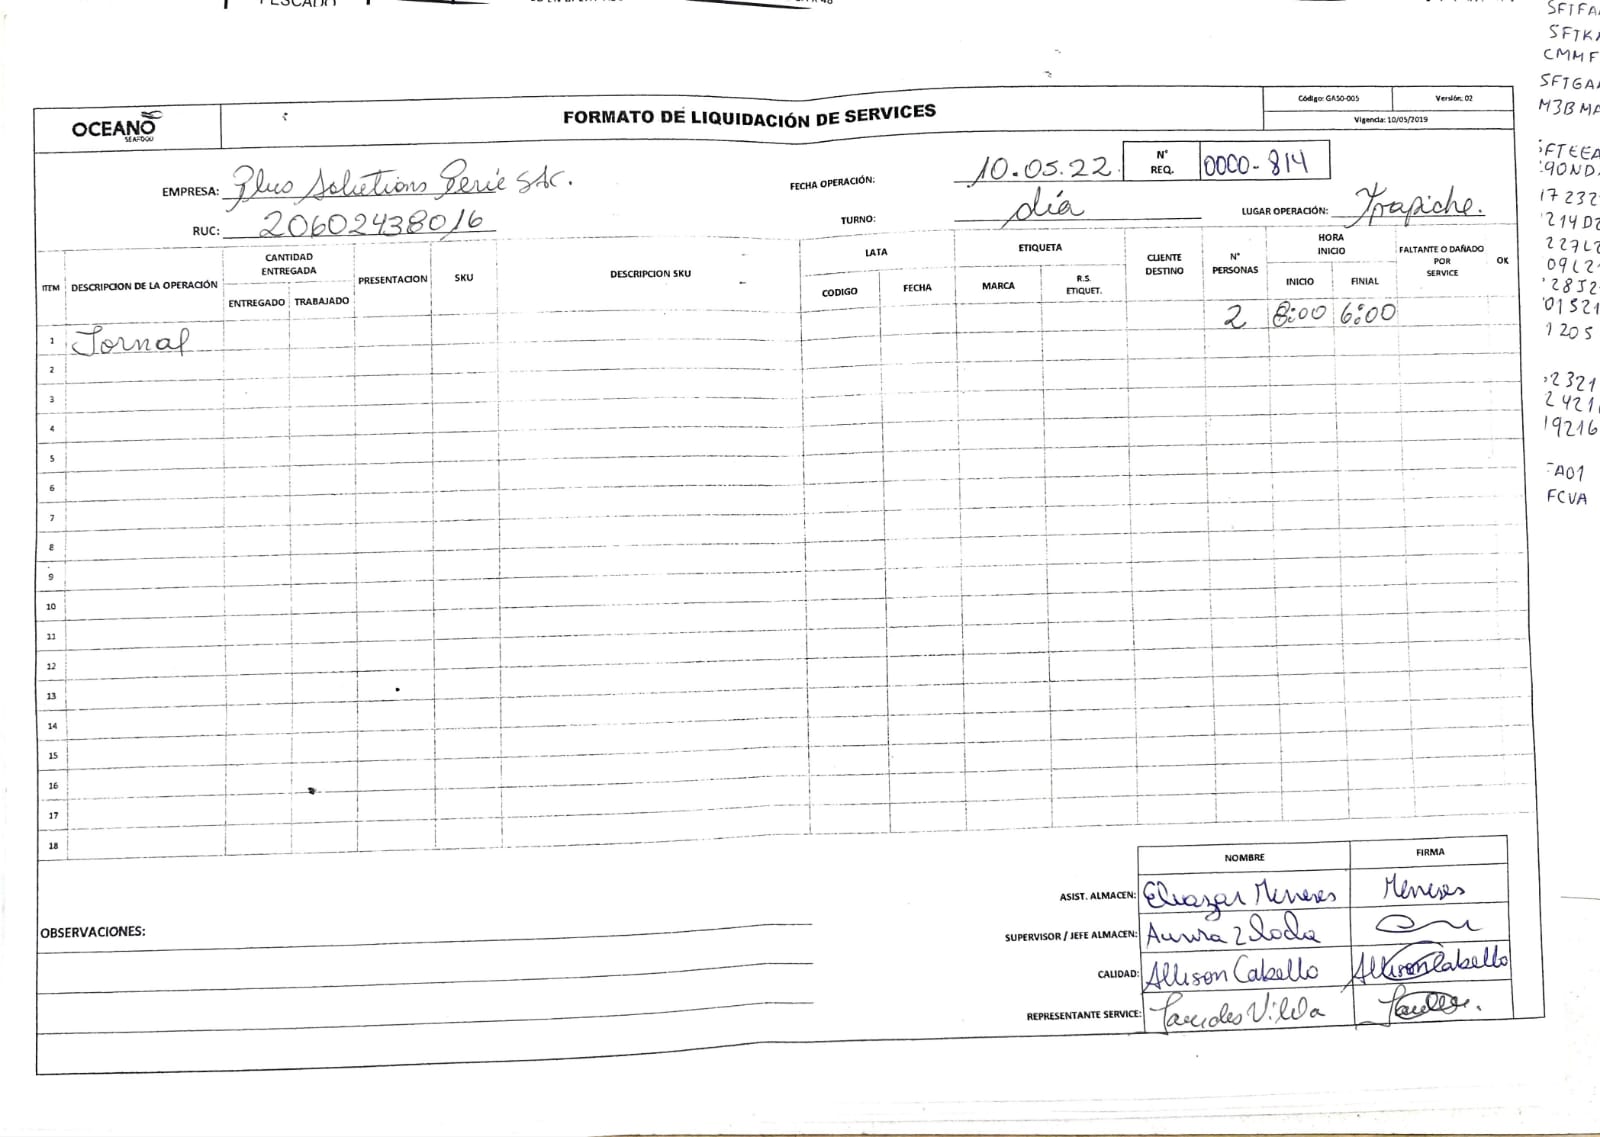 PESCADO
SFTFA
SFTKA
CMMF
SFTGA
M3BMA
FTEEA
90ND
17232
214D2
227L2
09L2
28J2
01521
1205
2321
2421
19216
A01
FCVA
OCEANO
SEAFOOD
FORMATO DE LIQUIDACIÓN DE SERVICES
Código: GASO-005 Versión: 02
Vigencia: 10/05/2019
EMPRESA: Plus Solutions Perú SAC.
FECHA OPERACIÓN: 10.05.22
N° REQ. 0000-814
RUC: 20602438016
TURNO: día
LUGAR OPERACIÓN: Trapiche.
ITEM DESCRIPCION DE LA OPERACIÓN CANTIDAD ENTREGADA PRESENTACION SKU DESCRIPCION SKU LATA ETIQUETA CLIENTE DESTINO N° PERSONAS HORA INICIO FALTANTE O DAÑADO POR SERVICE OK
ENTREGADO TRABAJADO CODIGO FECHA MARCA R.S. ETIQUET. INICIO FINIAL
1 Jornal 2 8:00 6:00
2
3
4
5
6
7
8
9
10
11
12
13
14
15
16
17
18
OBSERVACIONES:
NOMBRE FIRMA
ASIST. ALMACEN: Eleazar Meneses Meneses
SUPERVISOR / JEFE ALMACEN: Aurora
CALIDAD: Allison Cabello Allison Cabello
REPRESENTANTE SERVICE: